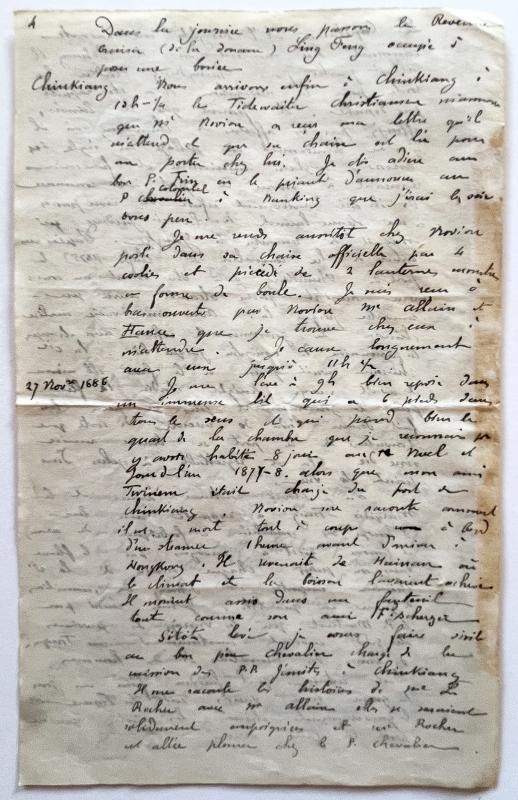 4
Dans la journée nous passons le Revenue
Cruiser (de la douane) Ling Feng occupé à
poser une bouée
Chinkiang Nous arrivons enfin à Chinkiang à
10h-1/4 le Tidewaiter Christiansen m'annonce
que Mr Novion a reçu ma lettre qu'il
m'attend et que sa chaise est là pour
me porter chez lui. Je dis adieu au
bon P. en le priant d'annoncer au
P colombel à Nanking que j'irai les voir
sous peu.
Je me rends aussitôt chez Novion
porté dans sa chaise officielle par 4
coolies et précédé de 2 lanternes monstre
en forme de boule. Je suis reçu à
bras ouverts par Novion Mr allain et
Hance que je trouve chez eux à
m'attendre. Je cause longuement
avec eux jusqu'à 11h 1/2
27 Novre 1886 Je me lève à 9h bien reposé dans
un immense lit qui a 6 pieds dans
tous le sens et qui prend bien le
quart de la chambre que je reconnais
y avoir habité 8 jours entre Noel et
Jour de l'an 1877-8. alors que mon ami
Twinem était chargé du port de
Chinkiang. Novion me raconte comment
il est mort tout à coup à bord
d'un steamer 1 heure avant d'arriver à
Hongkong. Il revenait de Hainan où
le climat et la boisson l'avaient achevé
Il mourut assis dans un fauteuil
tout comme son ami
Sitôt levé je vais faire visite
au bon père chevalier chargé de la
mission des P.P. Jésuites à Chinkiang
Il me raconte les histoires de Me
Rocher avec Me allain elles se seraient
solidement empoignées et Rocher
est allée pleurer chez le P. chevalier